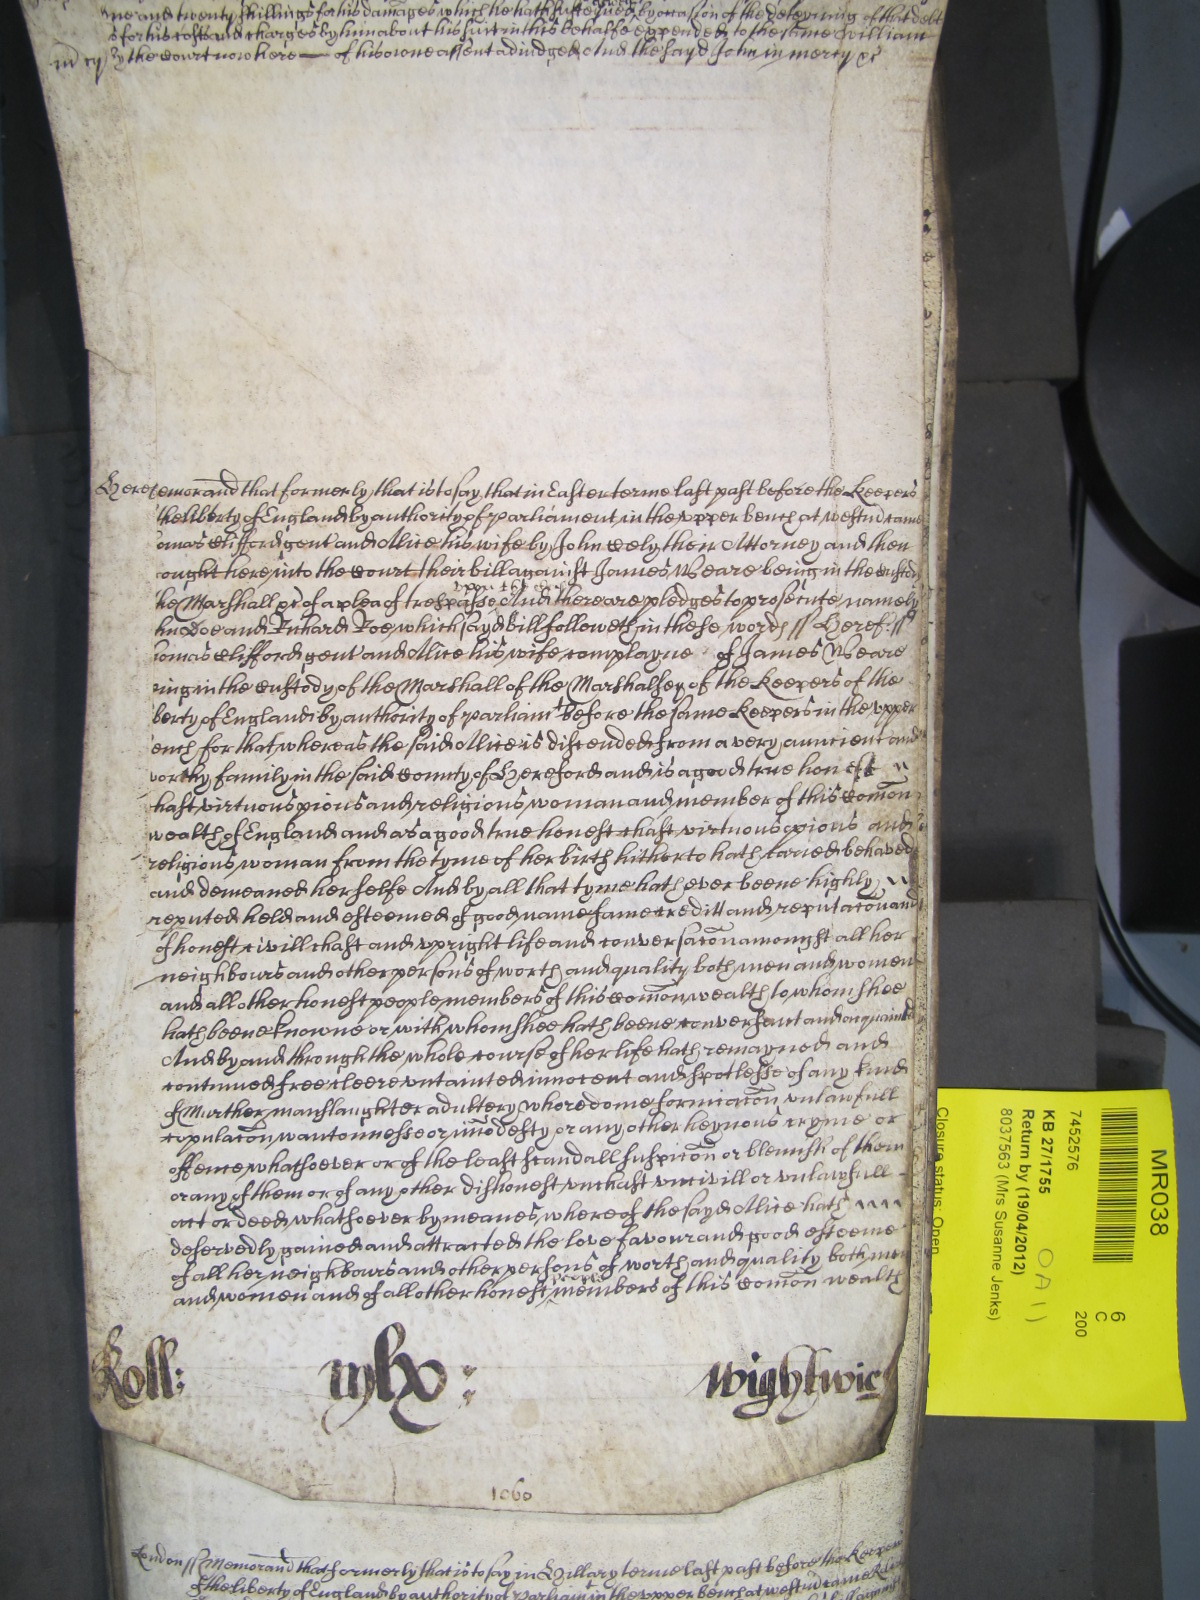 and twenty shillings for his damages which he hath susteyned by occasion of the deteyning of that debt
for his costs and charges by him about his suit in this behalfe expended to the same William
by the Court now here — of his owne assent adiudged And the sayd John in mercy &c
Heref emorand that formerly that is to say that in Easter terme last past before the Keepers
the liberty of England by authority of parliament in the vpper bench at westm came
omas Clifford gent and Allice his wife by John Cely their Attorney and then
ought here into the Court their bill against James Weare being in the Custody
he Marshall &c of a plea of trespasse vpon the case And there are pledges to prosecute namely
hn Doe and Richard Roe which sayd bill followeth in these words // Heref //
homas Clifford gent and Allice his wife complayne of James Weare
eing in the Custody of the Marshall of the Marshalsey of the Keepers of the
berty of England by authority of parliamt before the same Keepers in the vpper
ench for that whereas the said Allice is discended from a very auncient and
worthy family in the said County of Hereford and is a good true honest
chast virtuous pious and religious woman and member of this Comon
wealth of England and as a good true honest chast virtuous pious and
religious woman from the tyme of her birth hitherto hath caried behaved
and demeaned her selfe And by all that tyme hath ever beene highly
reputed held and esteemed of good name fame creditt and reputacon and
of honest civill chast and vpright life and conversacon amongst all her
neighbours and other persons of worth and quality both men and women
and all other honest people members of this Comon wealth to whom shee
hath beene knowne or with whom shee hath beene conversant and acquainted
And by and through the whole course of her life hath remayned and
continued free cleere vntainted innocent and spotlesse of any kind
of Murther manslaughter adultery whoredome fornicacon vnlawfull
copulacon wantonnesse or imodesty or any other heynous cryme or
offence whatsoever or of the least scandall suspicon or blemish of them
or any of them or of any other dishonest vnchast vncivill or vnlawfull
act or deed whatsoever by meanes whereof the sayd Allice hath
deservedly gained and attracted the love favour and good esteeme
of all her neighbours and other persons of worth and quality both men
and women and of all other honest people members of this Comon wealth
Roll: mlx : Wightwic
1060
London // Memorand that formerly that is to say in Hillary terme last past before the Keepers
of the liberty of England by authority of Parliamt in the vpper bench at westm came
MR038
6
C
200
7452576
KB 27/1755
Return by (19/04/2012)
8037563 (Mrs Susanne Jenks)
Closure status: Open